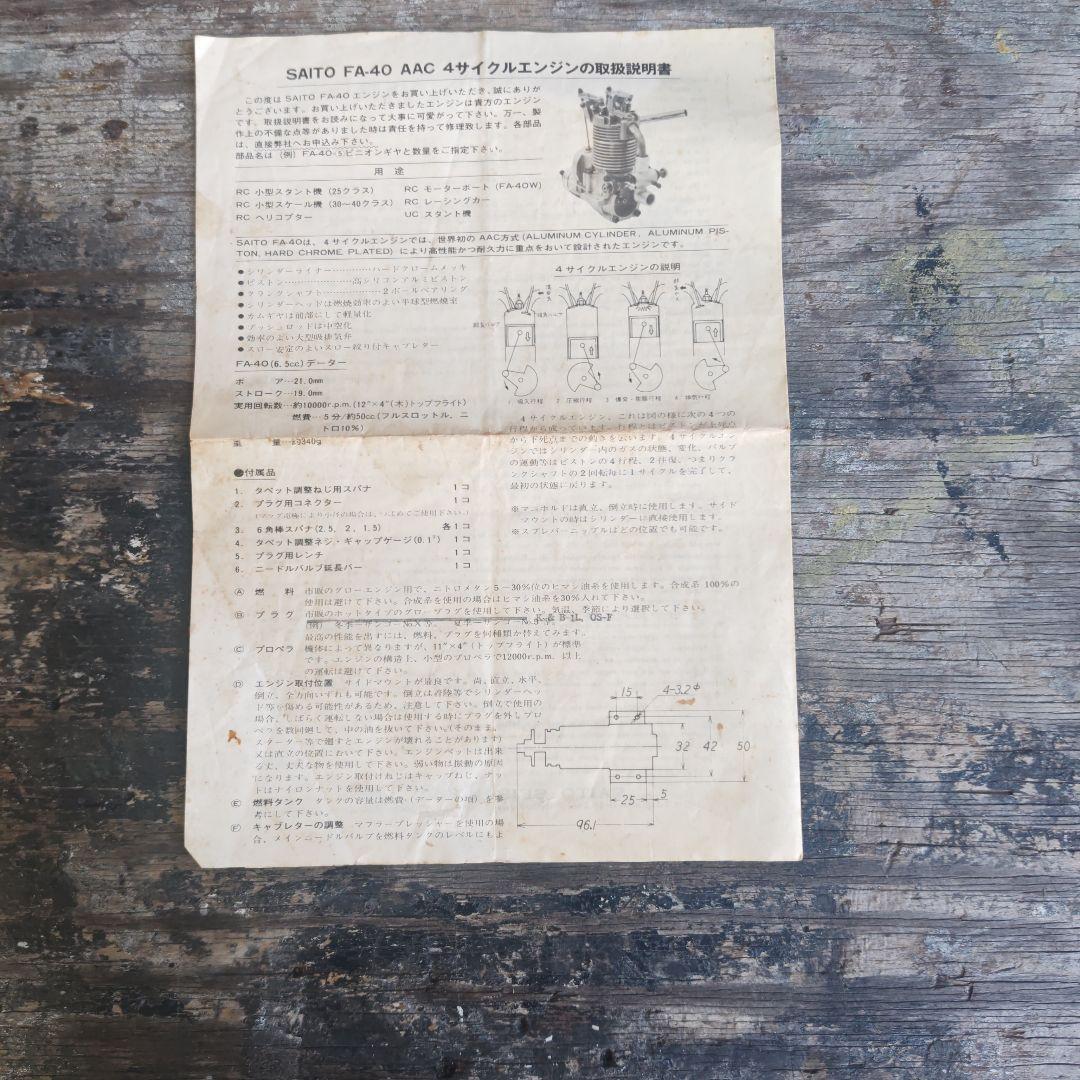 SAITO FA-40 AAC 4サイクルエンジンの取扱説明書
この度は SAITO FA-40 エンジンをお買い上げいただき、誠にありが
とうございます。お買い上げいただきましたエンジンは貴方のエンジン
です。取扱説明書をお読みになって大事に可愛がって下さい。万一、製
作上の不備な点等がありました時は責任を持って修理致します。各部品
は、直接弊社へお申込み下さい。
部品名は (例) FA-40-5ピニオンギヤと数量をご指定下さい。
用 途
RC 小型スタント機 (25クラス)
RC 小型スケール機 (30〜40クラス)
RC ヘリコプター
RC モーターボート (FA-40W)
RC レーシングカー
UC スタント機
SAITO FA-40は、4サイクルエンジンでは、世界初の AAC方式 (ALUMINUM CYLINDER, ALUMINUM PIS-
TON, HARD CHROME PLATED) により高性能かつ耐久力に重点をおいて設計されたエンジンです。
●シリンダーライナー…………ハードクロームメッキ
●ピストン……………………高シリコンアルミピストン
●クランクシャフト……………2ボールベアリング
●シリンダーヘッドは燃焼効率のよい半球型燃焼室
●カムギヤは前部にして軽量化
●プッシュロッドは中空化
●効率のよい大型吸排気弁
●スロー安定のよいスロー絞り付キャブレター
FA-40(6.5cc)データー
ボ ア…21.0mm
ストローク…19.0mm
実用回転数…約10000r.p.m.(12"×4"(木)トップフライト)
燃費…5分/約50cc(フルスロットル、ニ
トロ10%)
重 量…約340g
●付属品
1. タペット調整ねじ用スパナ 1コ
2. プラグ用コネクター 1コ
3. 6角棒スパナ(2.5, 2, 1.5) 各1コ
4. タペット調整ネジ・ギャップゲージ(0.1t) 1コ
5. プラグ用レンチ 1コ
6. ニードルバルブ延長バー 1コ
4サイクルエンジンの説明
1 吸入行程 2 圧縮行程 3 爆発・膨脹行程 4 排気行程
4サイクルエンジン、これは図の様に次の4つの
行程から成っています。行程とはピストンが上死点
から下死点までの動きを云います。4サイクルエン
ジンではシリンダー内のガスの状態、変化、バルブ
の運動等はピストンの4行程、2往復、つまりクラ
ンクシャフトの2回転毎に1サイクルを完了して、
最初の状態に戻ります。
※マニホルドは直立、倒立時に使用します。サイド
マウントの時はシリンダーに直接使用します。
※スプレバーニップルはどの位置でも可能です。
Ⓐ 燃 料 市販のグローエンジン用で、ニトロメタン5〜30%位のヒマシ油系を使用します。合成系 100%の
使用は避けて下さい。合成系を使用の場合はヒマシ油系を30%入れて下さい。
Ⓑ プラグ 市販のホットタイプのグロープラグを使用して下さい。気温、季節により選択して下さい。
K&B-1L, OS-F
最高の性能を出すには、燃料、プラグを何種類か替えてみます。
Ⓒ プロペラ 機体によって異なりますが、11"×4"(トップフライト)が標準
です。エンジンの構造上、小型のプロペラで12000r.p.m. 以上
の運転は避けて下さい。
Ⓓ エンジン取付位置 サイドマウントが最良です。尚、直立、水平、
倒立、全方向いずれも可能です。倒立は着陸等でシリンダーヘッ
ド等を傷める可能性があるため、注意して下さい。倒立で使用の
場合、しばらく運転しない場合は使用する時にプラグを外しプロ
ペラを数回廻して、中の油を抜いて下さい。(そのまま、
スターター等で廻すとエンジンが壊れることがあります)
又は直立の位置において下さい。エンジンベットは出来
る丈、丈夫な物を使用して下さい。弱い物は振動の原因
になります。エンジン取付けねじはキャップねじ、ナッ
トはナイロンナットを使用して下さい。
Ⓔ 燃料タンク タンクの容量は燃費・(データーの項) を参
考にして下さい。
Ⓕ キャブレターの調整 マフラープレッシャーを使用の場
合、メインニードルバルブを燃料タンクのレベルにもよ
15
4-3.2φ
32
42
50
25
5
96.1